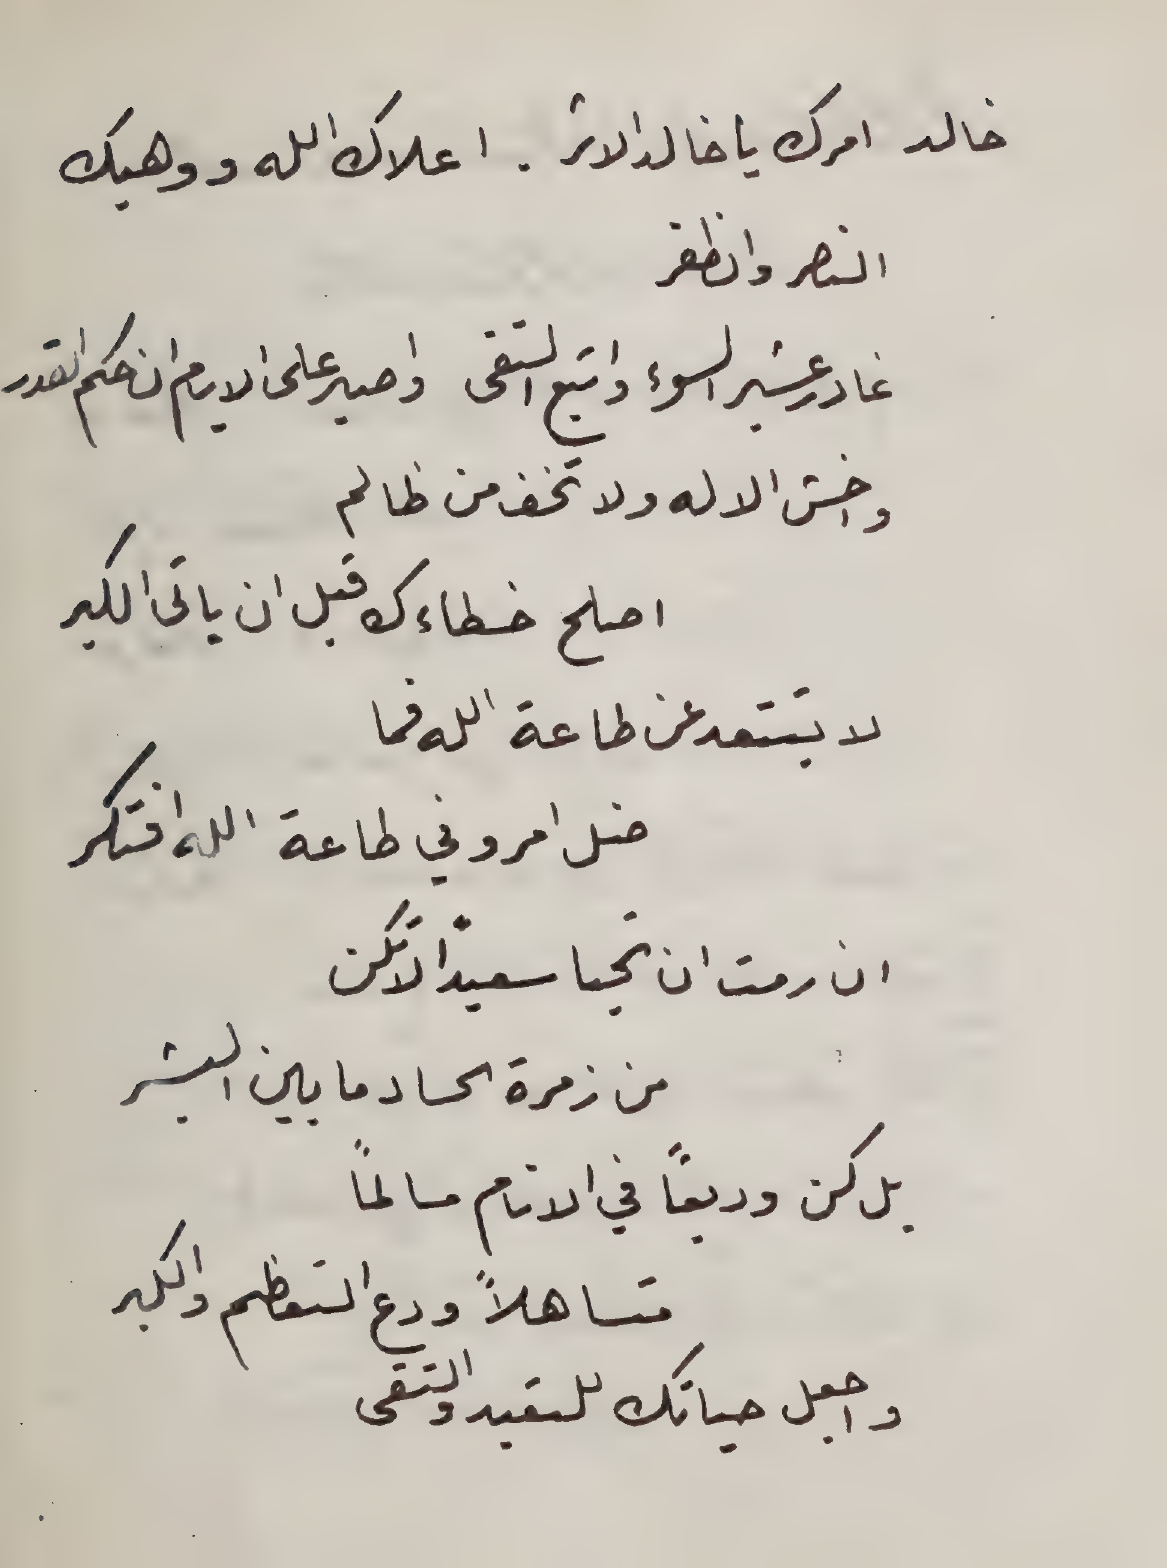 خالد امرك يا خالد الاثر . اعلاك الله ووهبك
النصر والظفر
غادر عشير السوء واتبع التقى واصبر على الايام ان حكم القدر
واخش الاله ولا تخف من ظالم
اصلح خطاءك قبل ان ياتى الكبر
لا تبتعد عن طاعة الله فما
ضل امرو في طاعة الله افتكر
ان رمت ان تحيا سعيدًا لاتكن
من زمرة الحساد ما بين البشر
بل كن وديعًا في الانام مسالمًا
متساهلاً ودع التعاظم والكبر
واجعل حياتك للتعبد والتقى